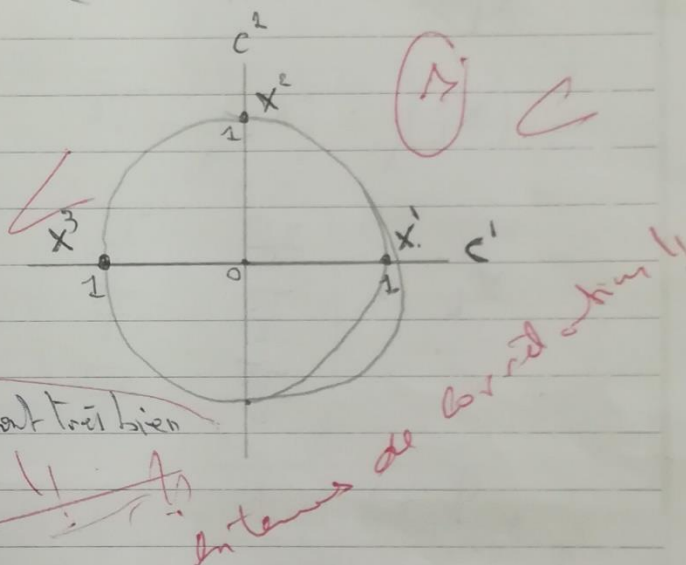 c²
x²
1
x³
x¹
c¹
1
0
1
ont très bien
en termes de corrélation